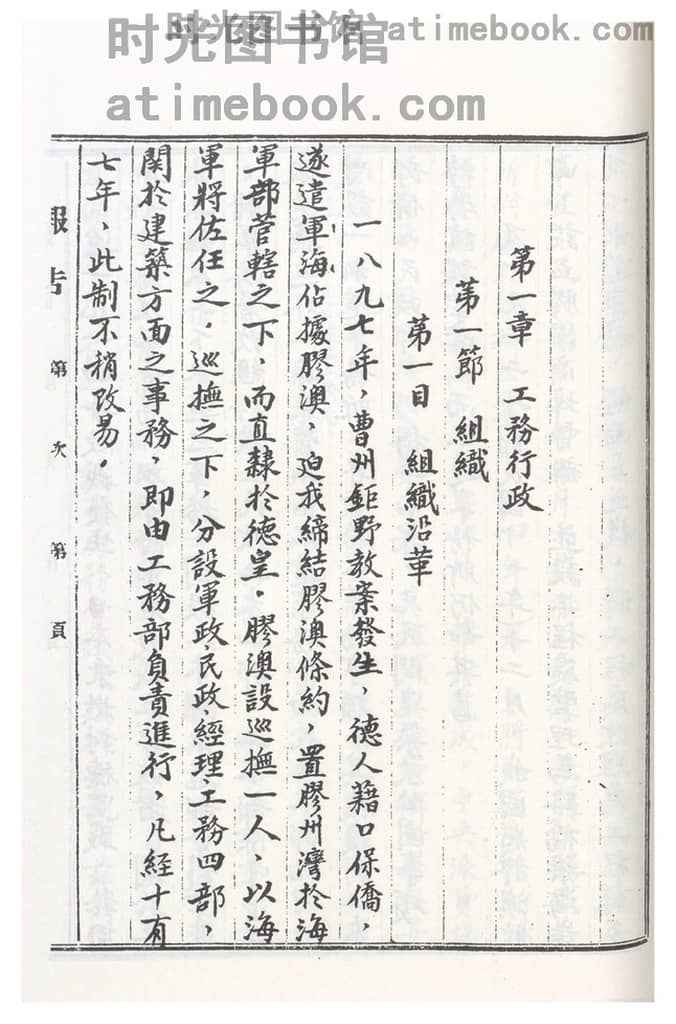 时光图书馆 atimebook.com
时光图书馆
atimebook.com
第一章 工務行政
第一節 組織
第一目 組織沿革
一八九七年，曹州鉅野教案發生，德人藉口保僑，
遂遣軍海佔據膠澳，迫我締結膠澳條約，置膠州灣於海
軍部管轄之下，而直隸於德皇。膠澳設巡撫一人，以海
軍將佐任之。巡撫之下，分設軍政、民政、經理、工務四部，
關於建築方面之事務，即由工務部負責進行，凡經十有
七年，此制不稍改易。
報告 第 次 第 頁